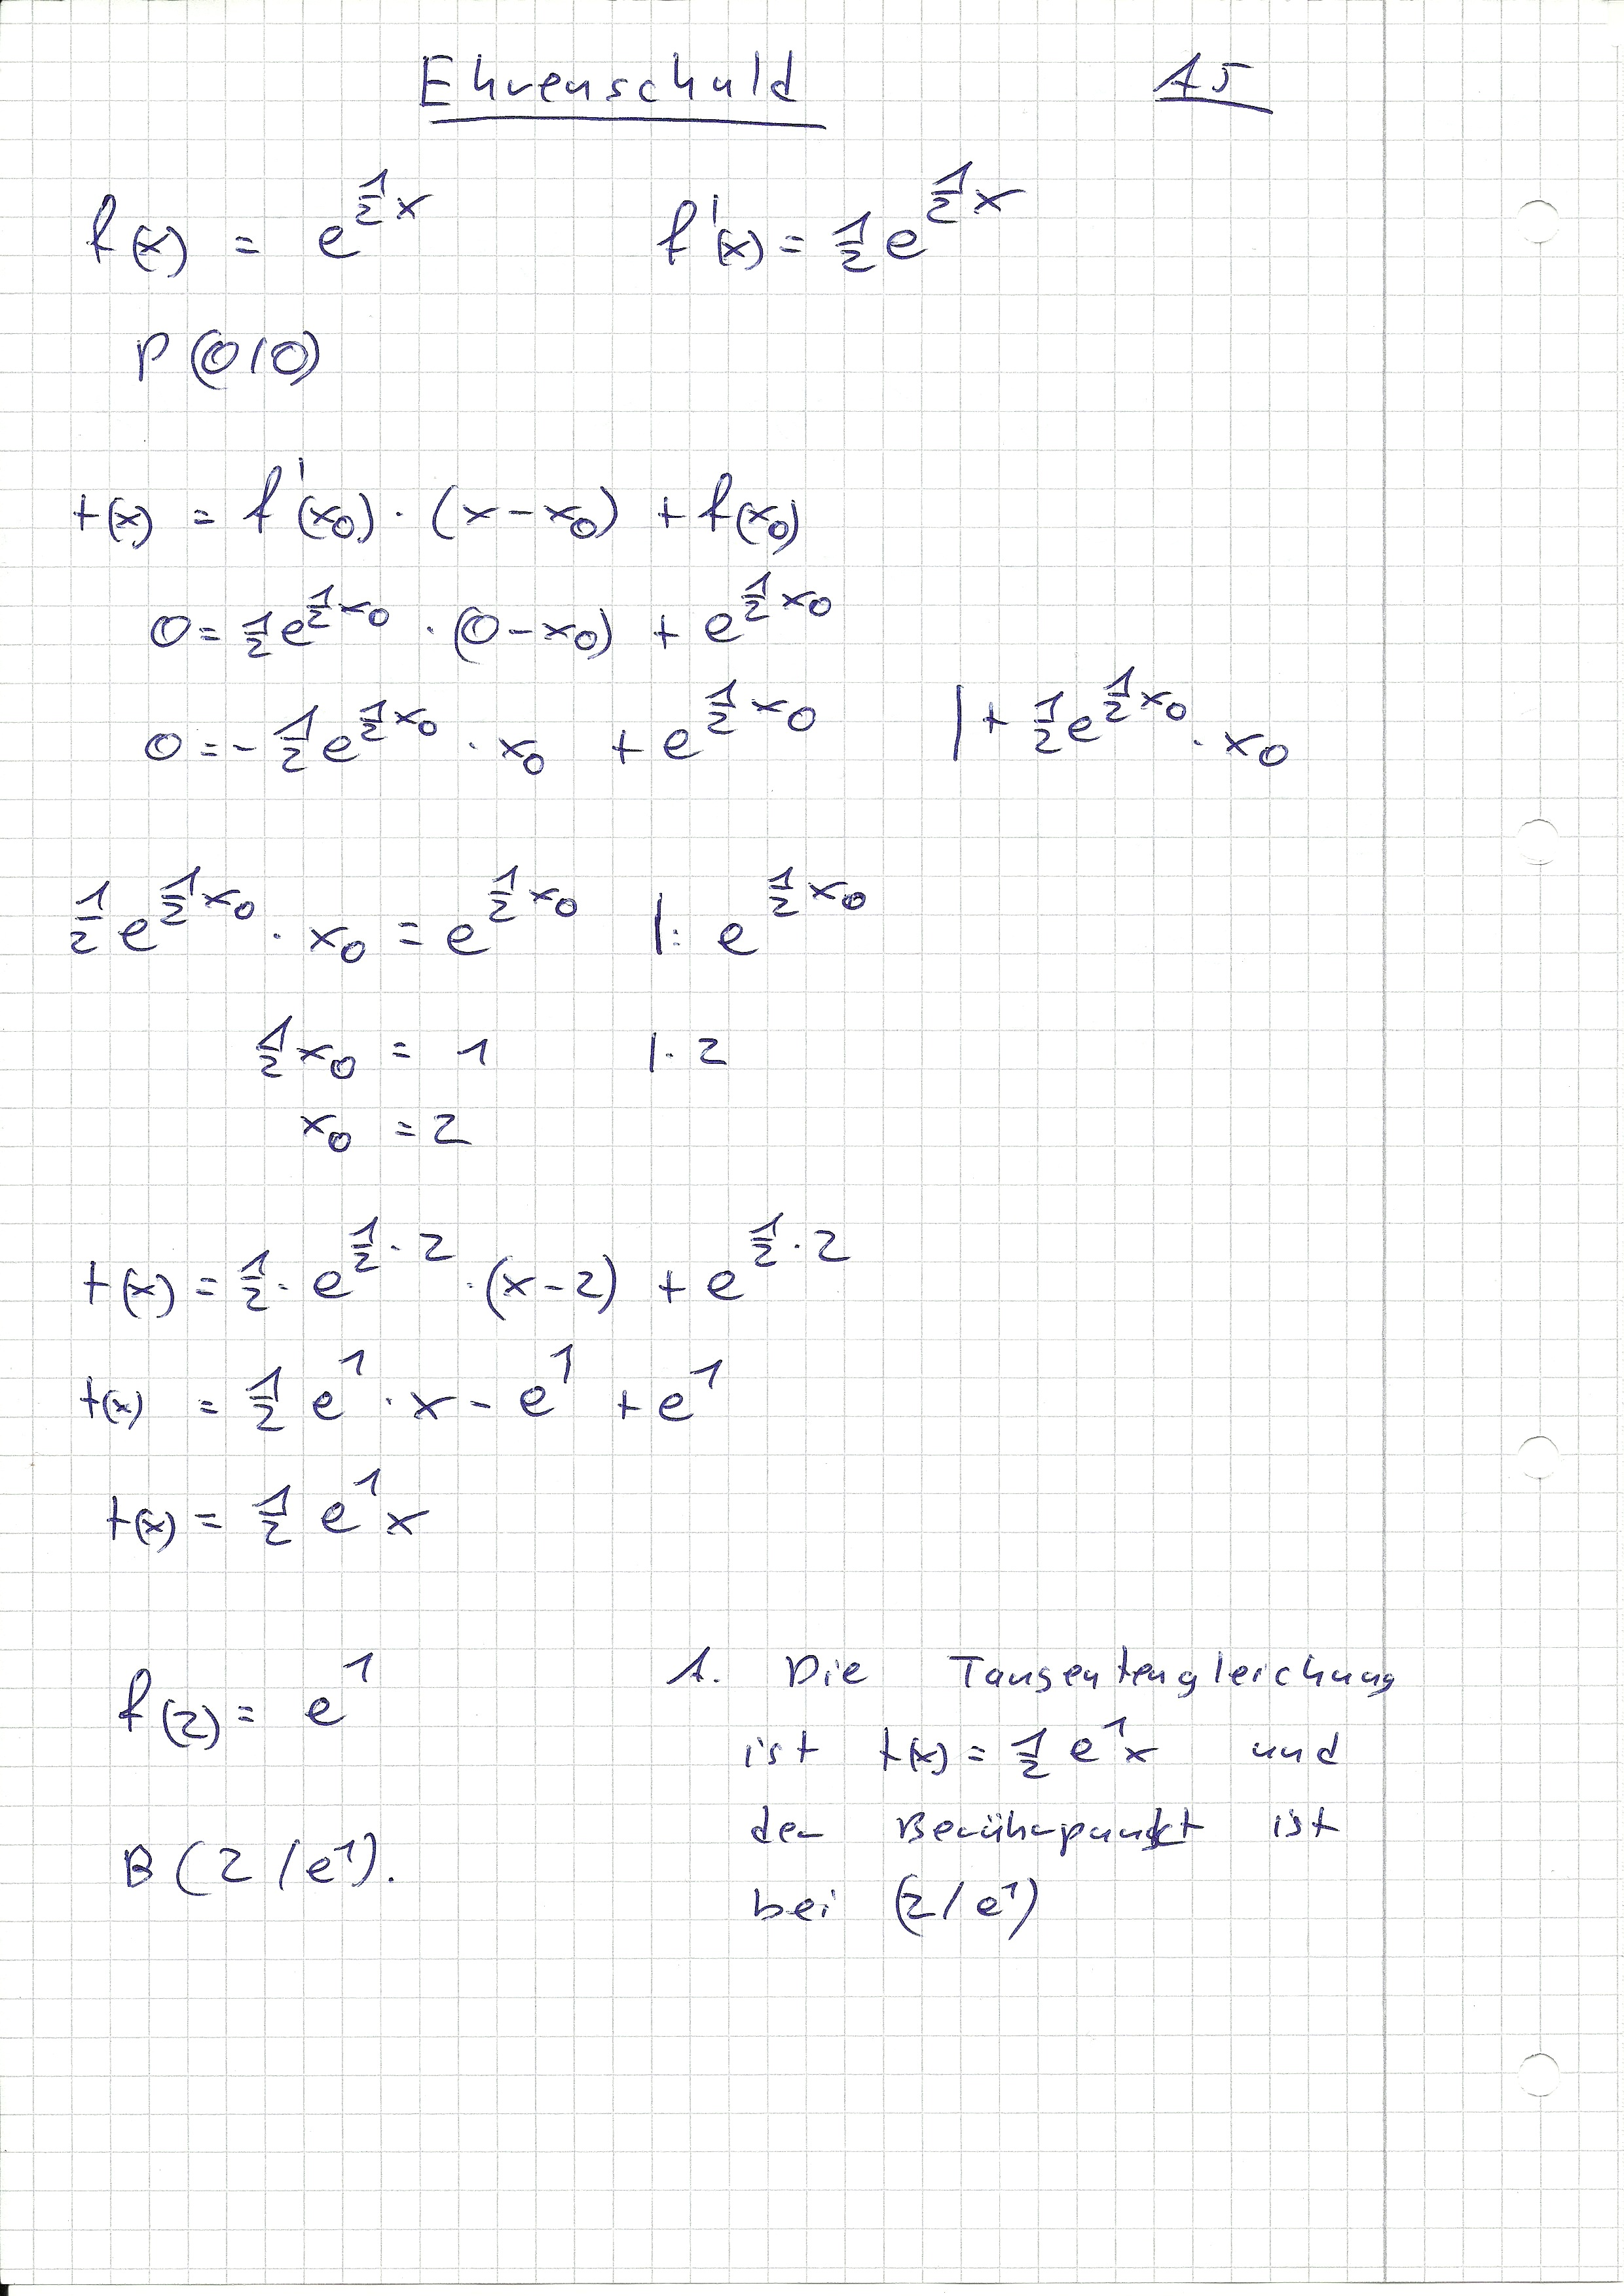 Ehrenschuld A5
f(x) = e^{\frac{1}{2}x} f'(x) = \frac{1}{2} e^{\frac{1}{2}x}
P(0/0)
t(x) = f'(x_0) · (x - x_0) + f(x_0)
0 = \frac{1}{2} e^{\frac{1}{2}x_0} · (0 - x_0) + e^{\frac{1}{2}x_0}
0 = -\frac{1}{2} e^{\frac{1}{2}x_0} · x_0 + e^{\frac{1}{2}x_0} | + \frac{1}{2} e^{\frac{1}{2}x_0} · x_0
\frac{1}{2} e^{\frac{1}{2}x_0} · x_0 = e^{\frac{1}{2}x_0} |: e^{\frac{1}{2}x_0}
\frac{1}{2} x_0 = 1 |· 2
x_0 = 2
t(x) = \frac{1}{2} · e^{\frac{1}{2}·2} · (x - 2) + e^{\frac{1}{2}·2}
t(x) = \frac{1}{2} e^1 · x - e^1 + e^1
t(x) = \frac{1}{2} e^1 x
f(2) = e^1
B(2/e^1).
A. Die Tangentengleichung
ist t(x) = \frac{1}{2} e^1 x und
der Berührpunkt ist
bei (2/e^1)